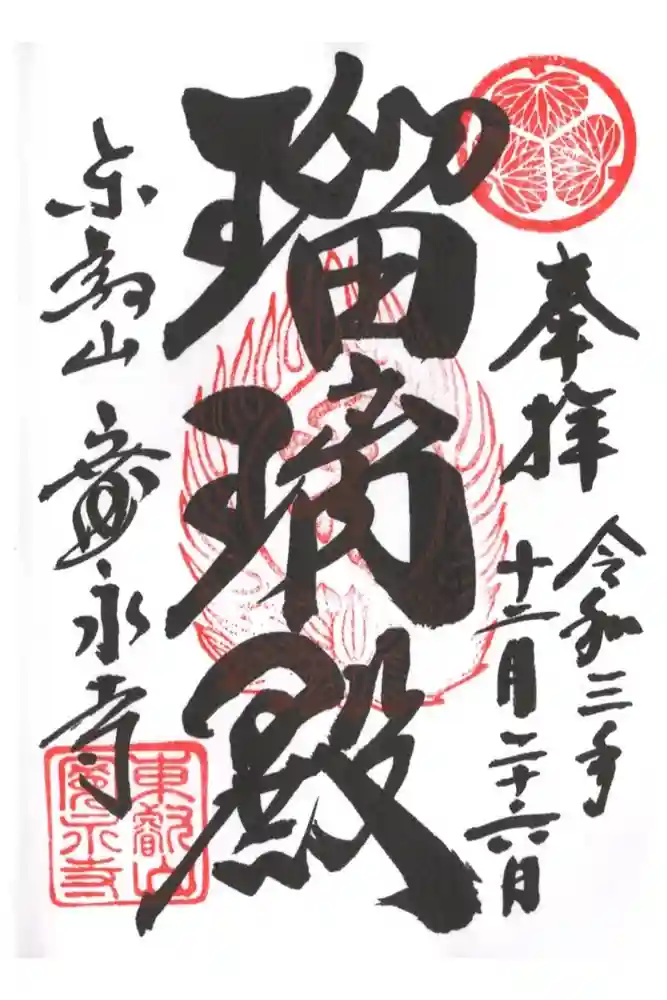 奉拝
令和三年
十二月二十六日
瑠璃殿
東叡山 寛永寺
東叡山
寛永寺